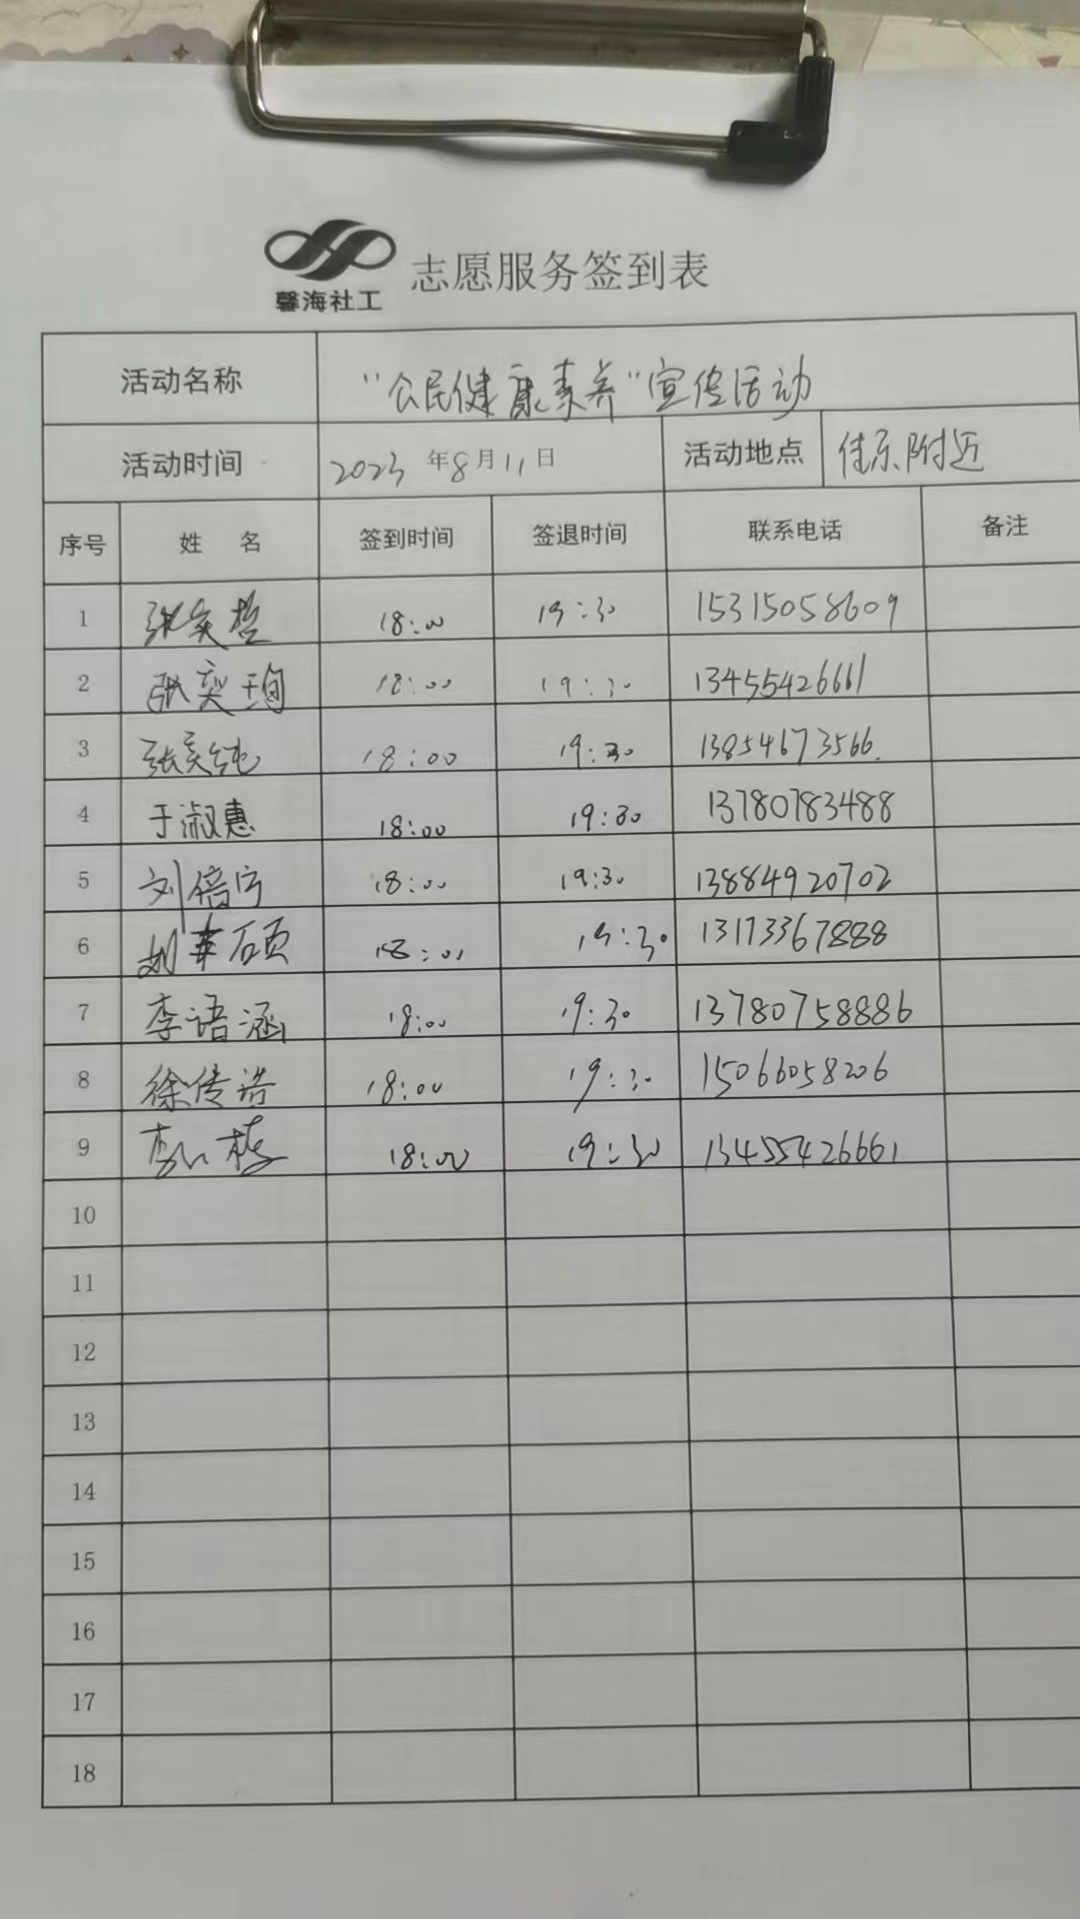 馨海社工
志愿服务签到表
活动名称 "公民健康素养"宣传活动
活动时间 2023年8月11日 活动地点 佳乐附近
序号 姓 名 签到时间 签退时间 联系电话 备注
1 张奕哲 18:00 19:30 15315058609
2 张奕珣 18:00 19:30 13455426661
3 张奕纯 18:00 19:30 13854673566.
4 于淑惠 18:00 19:30 13780783488
5 刘倍宁 18:00 19:30 13884920702
6 刘芈硕 18:00 19:30 13173367888
7 李语涵 18:00 19:30 13780758886
8 徐传诺 18:00 19:30 15066058206
9 18:00 19:30 13455426661
10
11
12
13
14
15
16
17
18